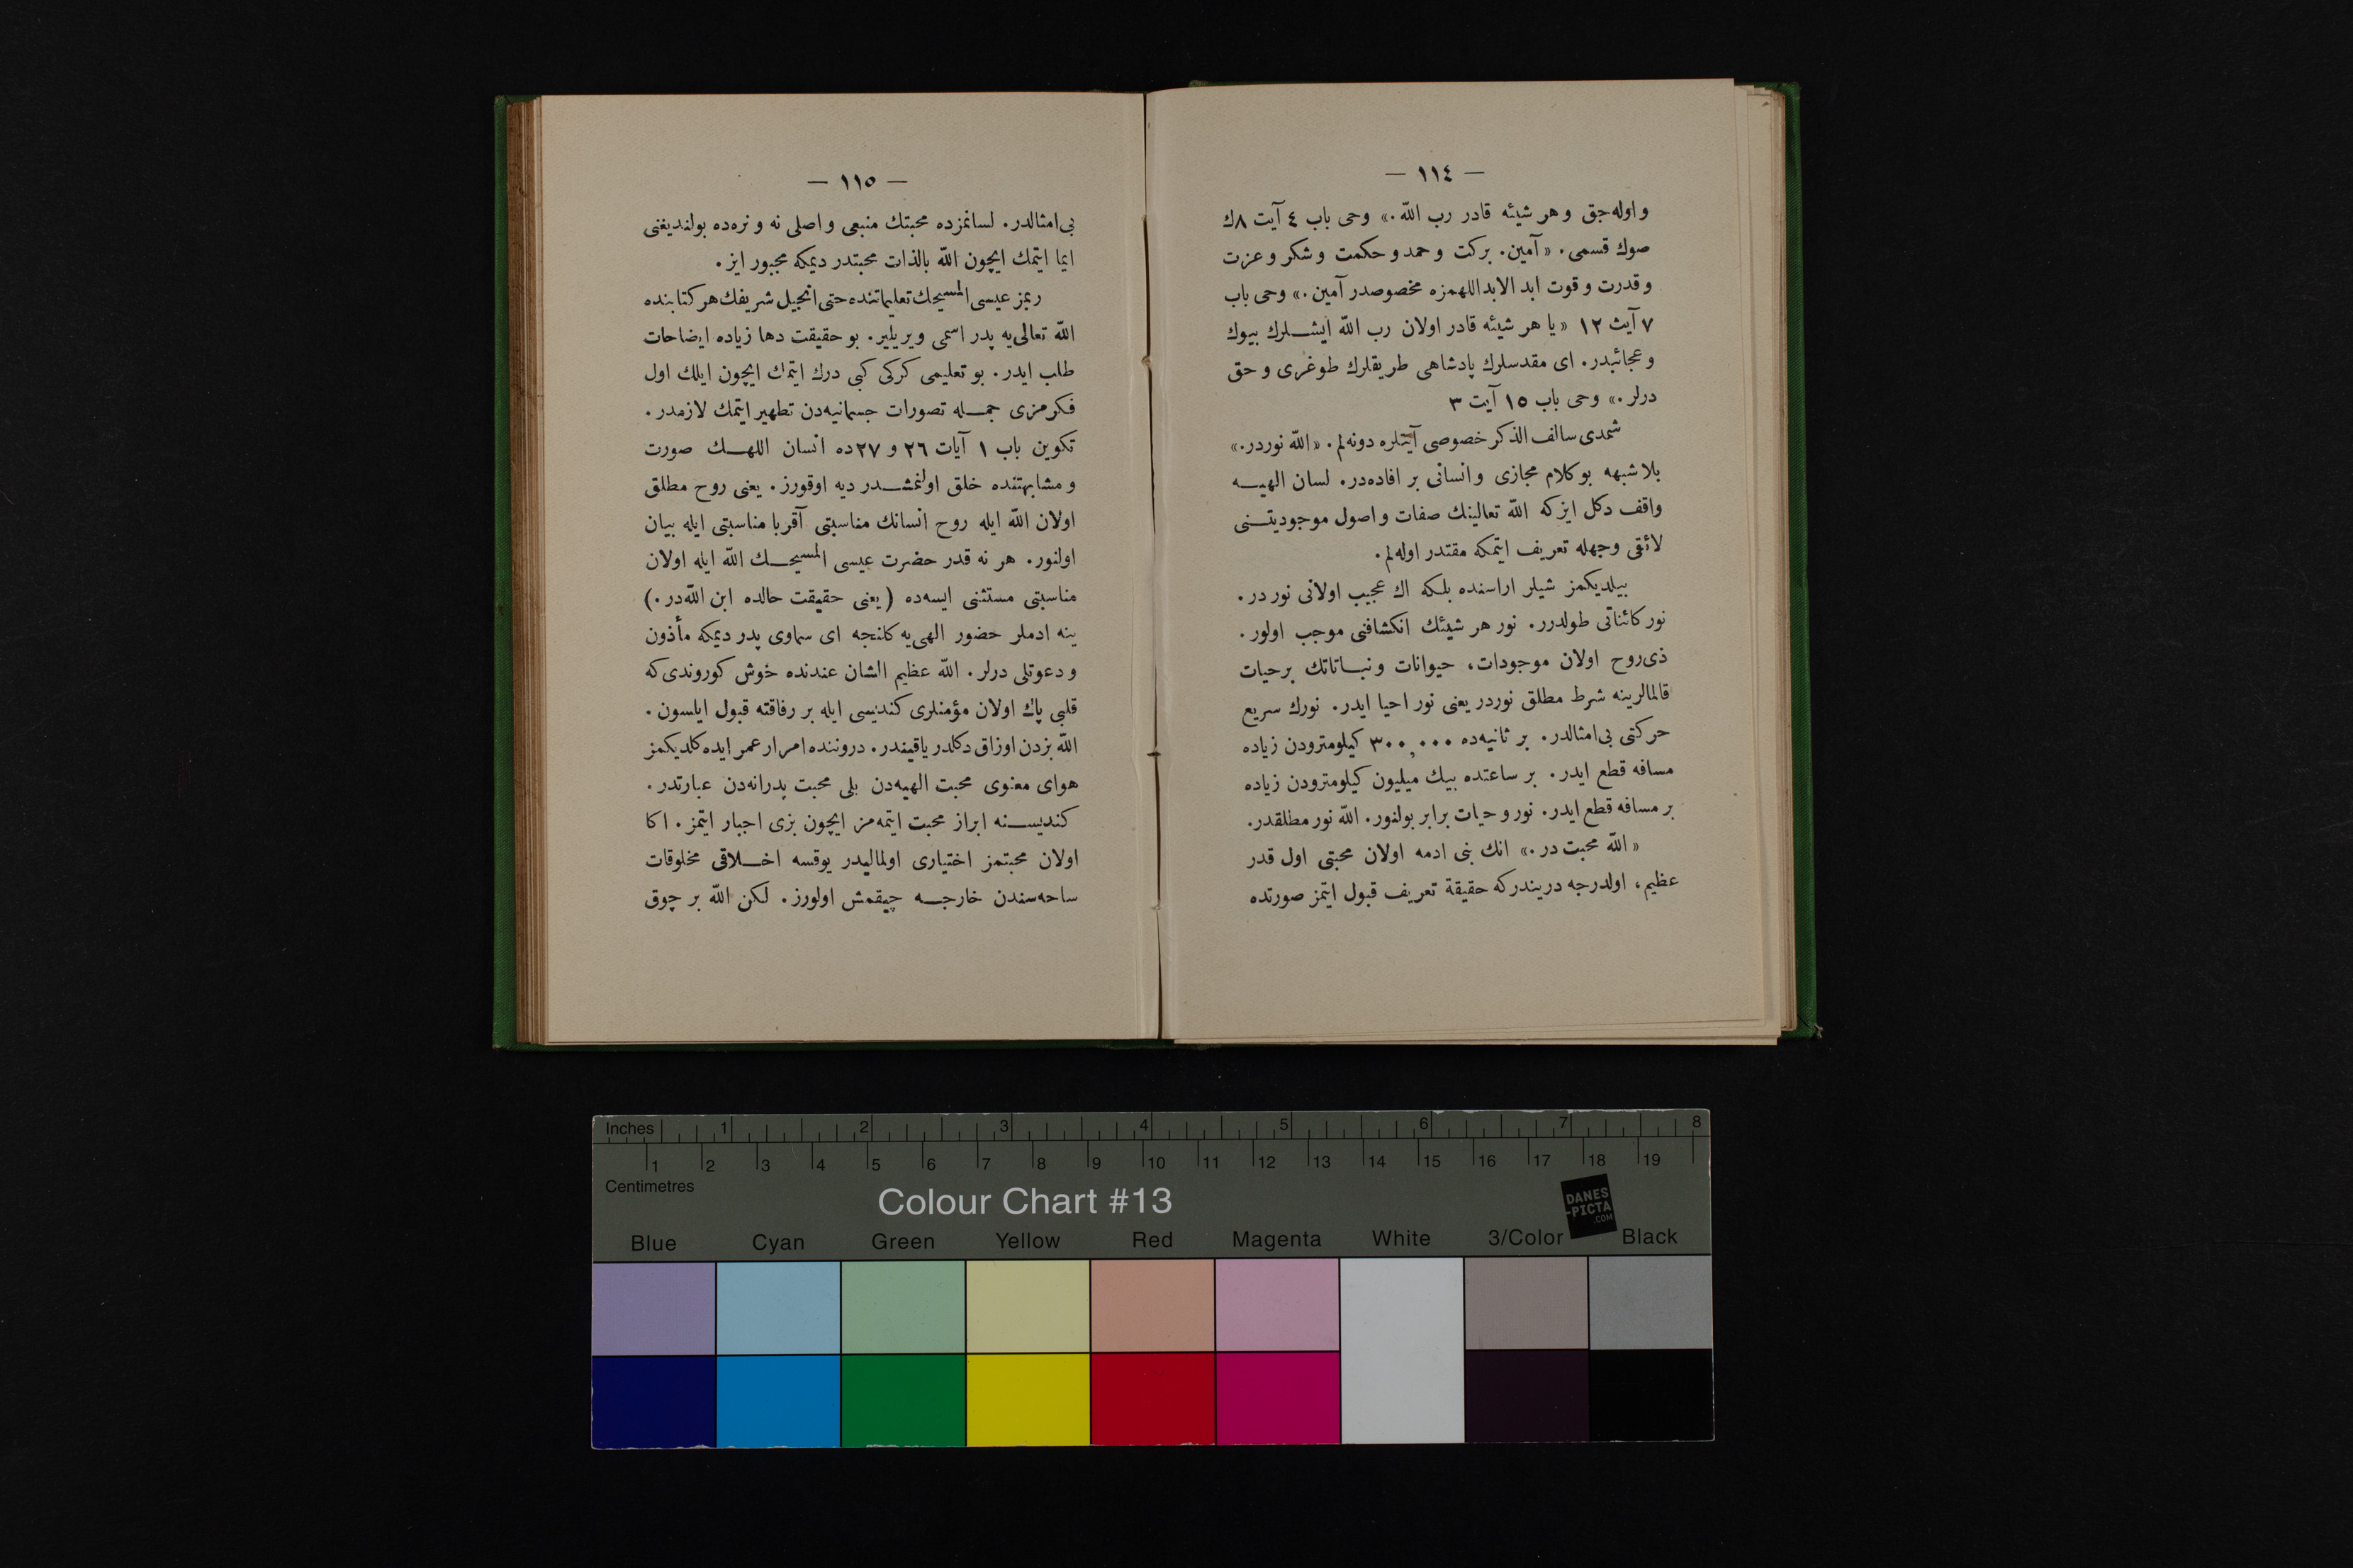 — ١١٤ —
و اوله‌جق و هر شیئه قادر رب اللّٰه .» وحی باب ٤ آیت ٨ك
صوك قسمی . « آمین . بركت و حمد و حكمت و شكر و عزت
و قدرت و قوت ابد الابد اللهمزه مخصوصدر آمین .» وحی باب
٧ آیت ١٢ « یا هر شیئه قادر اولان رب اللّٰه ایشلرك بیوك
و عجائبدر . ای مقدسلرك پادشاهی طریقلرك طوغری و حق
درلر .» وحی باب ١٥ آیت ٣
شمدی سالف الذكر خصوصی آیتلره دونه‌لم . « اللّٰه نوردر .»
بلا شبهه بو كلام مجازی و انسانی بر افاده‌در . لسان الهیه
واقف دكل ایز كه اللّٰه تعالینك صفات و اصول موجودیتنی
لائقی وجهله تعریف ایتمكه مقتدر اوله‌لم .
بیلدیكمز شیلر اراسنده بلكه اك عجیب اولانی نور در .
نور كائناتی طولدرر . نور هر شیئك انكشافنی موجب اولور .
ذی‌روح اولان موجودات ، حیوانات و نباتاتك برحیات
قالمالرینه شرط مطلق نوردر یعنی نور احیا ایدر . نورك سریع
حركتی بی‌امثالدر . بر ثانیه‌ده ٣٠٠,٠٠٠ كیلومترودن زیاده
مسافه قطع ایدر . بر ساعتده بیك میلیون كیلومترودن زیاده
بر مسافه قطع ایدر . نور و حیات برابر بولنور . اللّٰه نور مطلقدر .
« اللّٰه محبت در .» انك بنی ادمه اولان محبتی اول قدر
عظیم ، اولدرجه دریندر كه حقیقة تعریف قبول ایتمز صورتده
— ١١٥ —
بی‌امثالدر . لسانمزده محبتك منبعی و اصلی نه و نره‌ده بولندیغنی
ایما ایتمك ایچون اللّٰه بالذات محبتدر دیمكه مجبور ایز .
ربمز عیسی المسیحك تعلیماتنده حتی انجیل شریفك هر كتابنده
اللّٰه تعالی‌یه پدر اسمی ویریلیر . بو حقیقت دها زیاده ایضاحات
طلب ایدر . بو تعلیمی كركی كبی درك ایتمك ایچون ایلك اول
فكرمزی جمله تصورات جسمانیه‌دن تطهیر ایتمك لازمدر .
تكوین باب ١ آیات ٢٦ و ٢٧ده انسان اللهك صورت
و مشابهتنده خلق اولنمشدر دیه اوقورز . یعنی روح مطلق
اولان اللّٰه ایله روح انسانك مناسبتی آقربا مناسبتی ایله بیان
اولنور . هر نه قدر حضرت عیسی المسیحك اللّٰه ایله اولان
مناسبتی مستثنی ایسه‌ده ( یعنی حقیقت حالده ابن اللّٰه‌در .)
ینه ادملر حضور الهی‌یه كلنجه ای سماوی پدر دیمكه مأذون
و دعوتلی درلر . اللّٰه عظیم الشان عندنده خوش كوروندی كه
قلبی پاك اولان مؤمنلری كندیسی ایله بر رفاقته قبول ایلسون .
اللّٰه بزدن اوزاق دكلدر یاقیندر . دروننده امرار عمر ایده كلدیكمز
هوای معنوی محبت الهیه‌دن بلی محبت پدرانه‌دن عبارتدر .
كندیسنه ابراز محبت ایتمه‌مز ایچون بزی اجبار ایتمز . اكا
اولان محبتمز اختیاری اولمالیدر یوقسه اخلاقی مخلوقات
ساحه‌سندن خارجه چیقمش اولورز . لكن اللّٰه بر چوق
Inches 1 2 3 4 5 6 7 8
1 2 3 4 5 6 7 8 9 10 11 12 13 14 15 16 17 18 19
Centimetres
Colour Chart #13
DANES
-PICTA
.COM
Blue Cyan Green Yellow Red Magenta White 3/Color Black